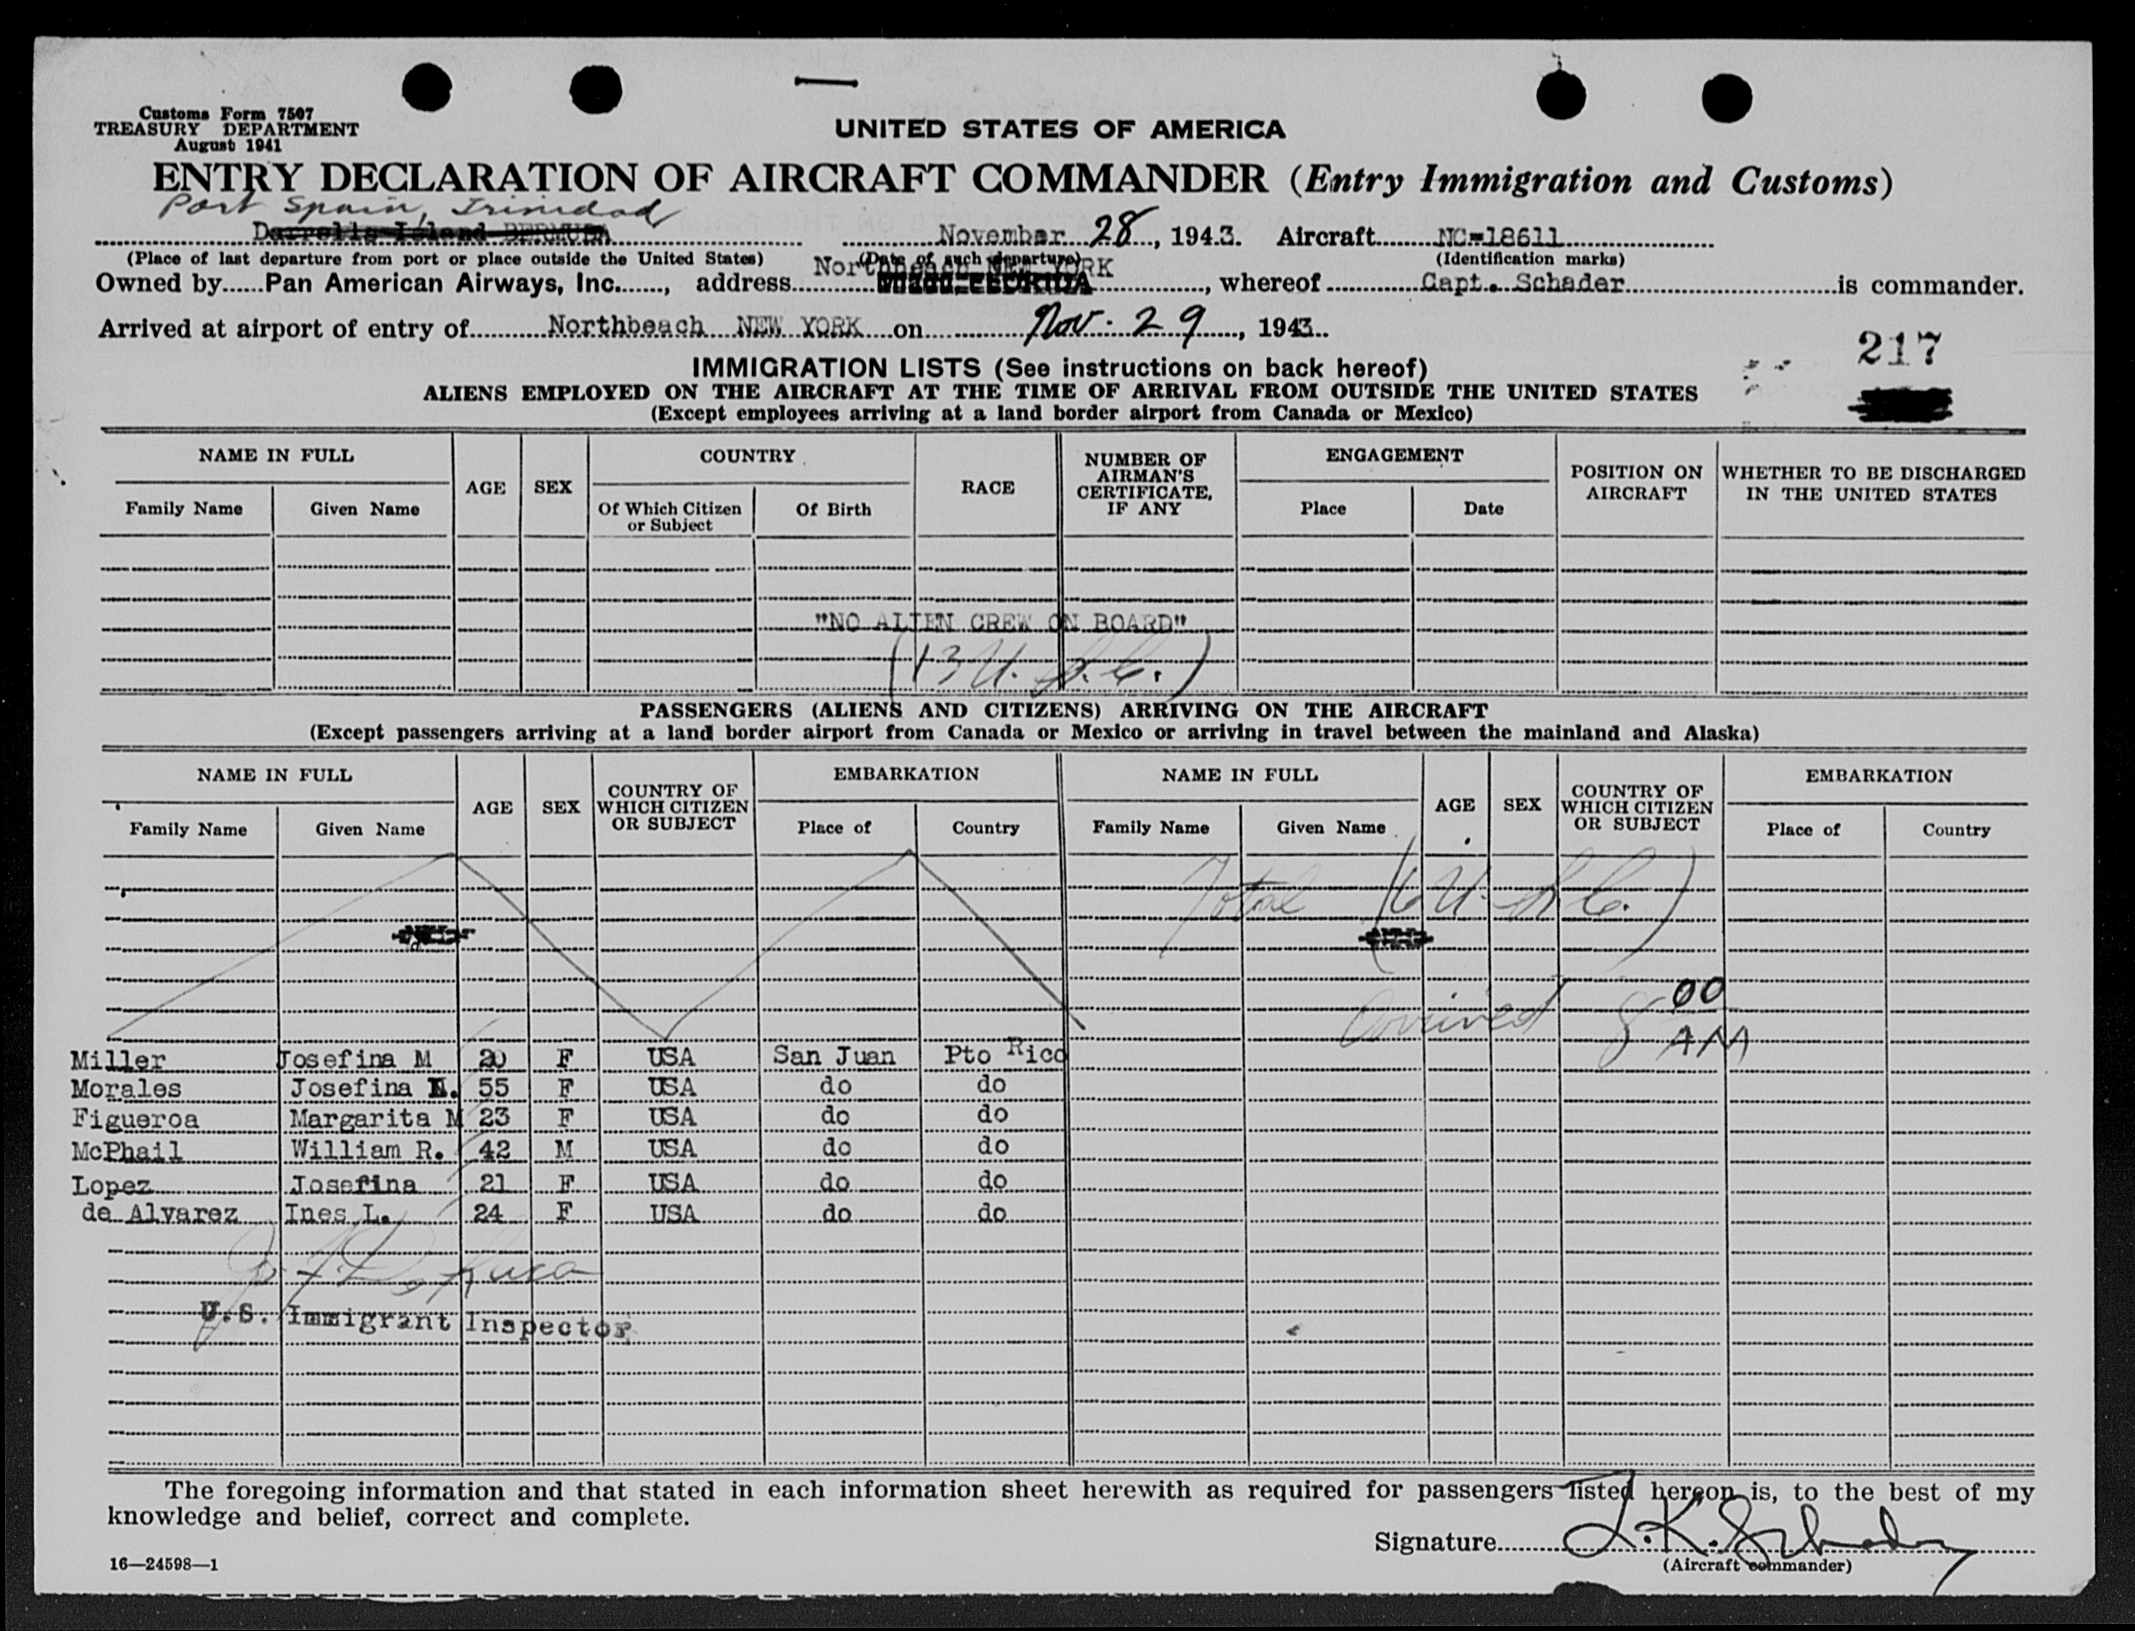 Customs Form 7507
TREASURY DEPARTMENT
August 1941
UNITED STATES OF AMERICA
ENTRY DECLARATION OF AIRCRAFT COMMANDER (Entry Immigration and Customs)
Port Spain, Trinidad
Darrells Island BERMUDA November 28, 1943. Aircraft NC-18611
(Place of last departure from port or place outside the United States) (Date of such departure) (Identification marks)
Northbeach NEW YORK
Owned by Pan American Airways, Inc., address Miami FLORIDA, whereof Capt. Schader is commander.
Arrived at airport of entry of Northbeach NEW YORK on Nov. 29, 1943.
217
IMMIGRATION LISTS (See instructions on back hereof)
ALIENS EMPLOYED ON THE AIRCRAFT AT THE TIME OF ARRIVAL FROM OUTSIDE THE UNITED STATES
(Except employees arriving at a land border airport from Canada or Mexico)
NAME IN FULL AGE SEX COUNTRY RACE NUMBER OF AIRMAN'S CERTIFICATE, IF ANY ENGAGEMENT POSITION ON AIRCRAFT WHETHER TO BE DISCHARGED IN THE UNITED STATES
Family Name Given Name Of Which Citizen or Subject Of Birth Place Date
"NO ALIEN CREW ON BOARD"
(13 U.S.C.)
PASSENGERS (ALIENS AND CITIZENS) ARRIVING ON THE AIRCRAFT
(Except passengers arriving at a land border airport from Canada or Mexico or arriving in travel between the mainland and Alaska)
NAME IN FULL AGE SEX COUNTRY OF WHICH CITIZEN OR SUBJECT EMBARKATION NAME IN FULL AGE SEX COUNTRY OF WHICH CITIZEN OR SUBJECT EMBARKATION
Family Name Given Name Place of Country Family Name Given Name Place of Country
Total (6 U.S.C.)
arrived 8 00
AM
Miller Josefina M 20 F USA San Juan Pto Rico
Morales Josefina 55 F USA do do
Figueroa Margarita M 23 F USA do do
McPhail William R. 42 M USA do do
Lopez Josefina 21 F USA do do
de Alvarez Ines L. 24 F USA do do
U.S. Immigrant Inspector
The foregoing information and that stated in each information sheet herewith as required for passengers listed hereon is, to the best of my
knowledge and belief, correct and complete.
Signature
(Aircraft commander)
16—24598—1